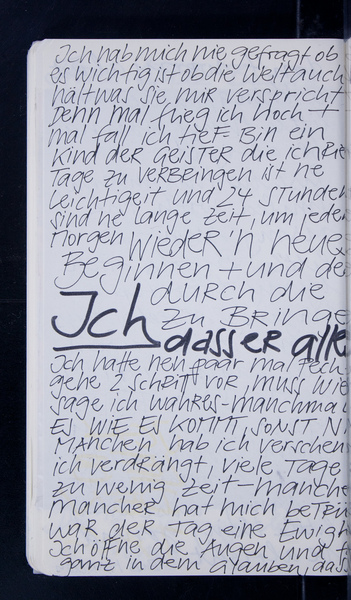 Ich hab mich nie gefragt ob
es wichtig ist ob die Welt auch
hält was sie mir verspricht
Denn mal flieg ich hoch +
mal fall ich tief Bin ein
Kind der Geister die ich
Tage zu verbringen ist ne
Leichtigkeit und 24 Stunden
sind ne lange Zeit, um jeden
Morgen wieder'n neue
Beginnen + und de
durch die
Ich zu Bringe
dass er alle
Ich hatte nen paar mal Pech
gehe 2 Schritt vor, muss wie
sage ich wahres - manchmal
ES WIE ES KOMMT, SONST N
Manchen hab ich verschen
ich verdrängt, viele Tage
zu wenig Zeit - manche
Mancher hat mich betrü
war der Tag eine Ewigk
Ich öffne die Augen und
ganz in dem Glauben, dass